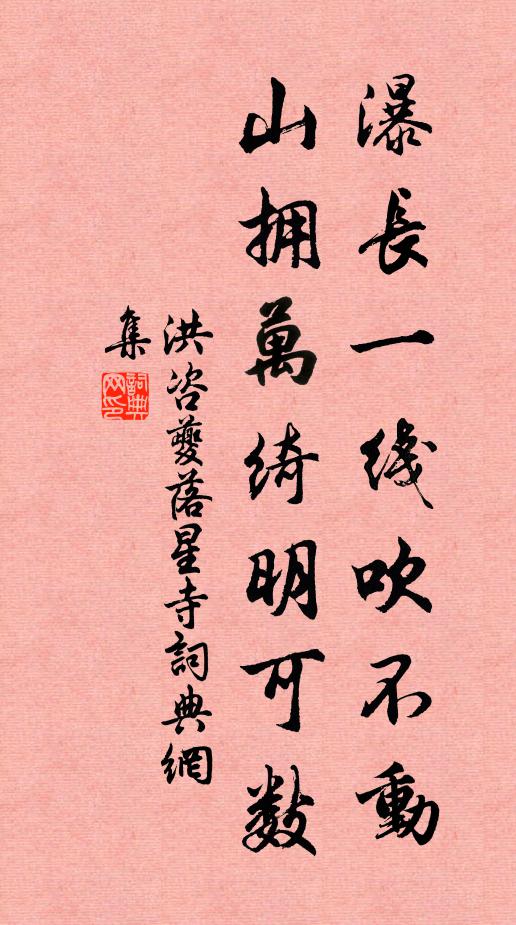 瀑長一綫吹不動
山拥萬绮明可数
洪咨夔落星寺詞典網
集
詞典
网印